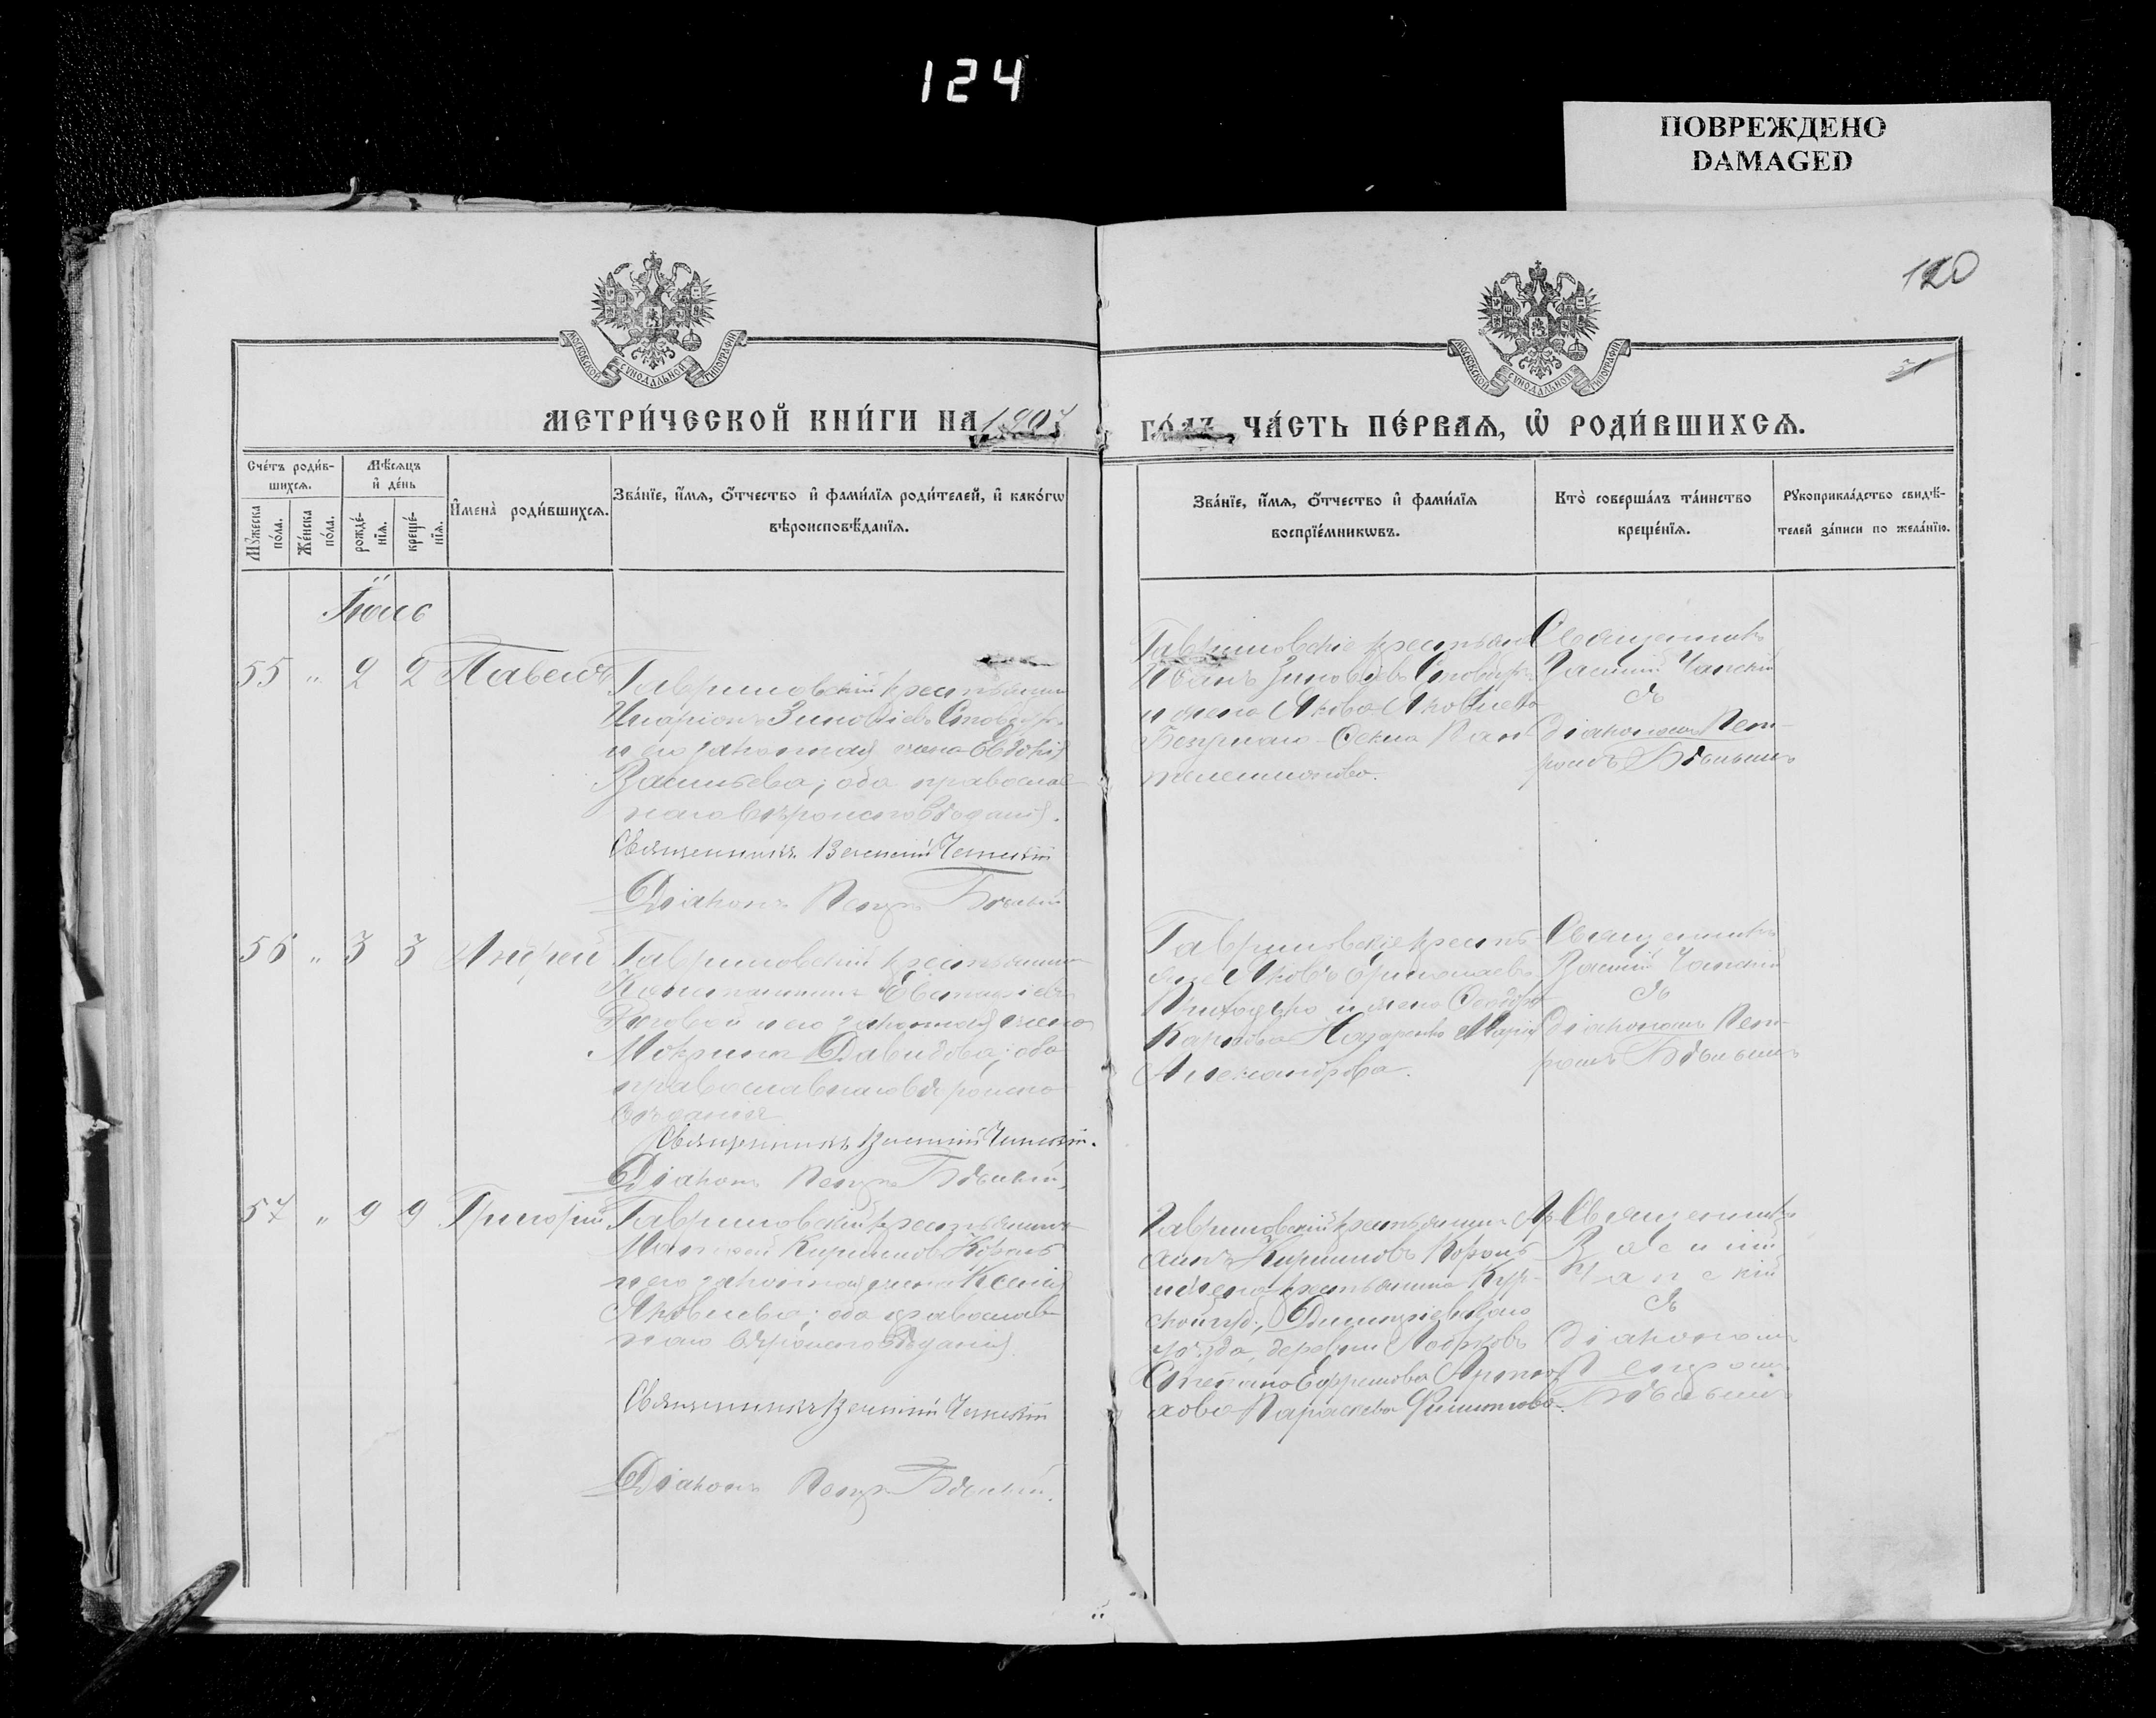 124
ПОВРЕЖДЕНО
DAMAGED
120
МОСКОВСКОЙ СУНОДАЛЬНОЙ ТИПОГРАФІИ
МОСКОВСКОЙ СУНОДАЛЬНОЙ ТИПОГРАФІИ
МЕТРИ́ЧЕСКОЙ КНИ́ГИ НА 1907
ГО́ДЪ, ЧА́СТЬ ПЕ́РВАѦ, Ѡ҆ РОДИ́ВШИХСѦ.
Сче́тъ роди́в-
шихсѧ.
Мꙋжеска
по́ла.
Же́нска
по́ла.
Мѣ́сѧцъ
и҆ де́нь
рожде́-
нїѧ.
креще́-
нїѧ.
И҆мена̀ роди́вшихсѧ.
Зва́нїе, и҆́мѧ, ѻ҆́тчество и҆ фами́лїѧ роди́телей, и҆ како́гѡ
вѣроисповѣ́данїѧ.
Зва́нїе, и҆́мѧ, ѻ҆́тчество и҆ фами́лїѧ
воспрїе́мникѡвъ.
Кто̀ соверша́лъ та́инство
креще́нїѧ.
Рꙋкоприкла́дство свидѣ́-
телей за́писи по жела́нїю.
Іюль
55 " 2 2 Павелъ
Гавриловскій крестьянинъ
Иларіонъ Зиновіевъ
и его законная жена Евдокія
Васильева; оба православ-
наго вѣроисповѣданія.
Священникъ Василій Чапскій
Діаконъ Петръ Бѣлый
Гавриловскіе крестьяне
Иванъ Зиновіевъ
и жена Якова Яковлева
Пан-
телеимонова.
Священникъ
Василій Чапскій
съ
діакономъ Пет-
ромъ Бѣлымъ
56 " 3 3 Андрей
Гавриловскій крестьянинъ
Константинъ Евстафіевъ
и его законная жена
Мокрина Давидова; оба
православнаго вѣроиспо-
вѣданія
Священникъ Василій Чапскій.
Діаконъ Петръ Бѣлый
Гавриловскіе кресть-
яне Яковъ
Приходько и жена Ѳеодора
Карпова Назаренко Марія
Александрова.
Священникъ
Василій Чапскій
съ
діакономъ Пет-
ромъ Бѣлымъ
57 " 9 9 Григорій
Гавриловскій крестьянинъ
Кирилловъ Король
и его законная жена Ксенія
Яковлева; оба православ-
наго вѣроисповѣданія.
Священникъ Василій Чапскій
Діаконъ Петръ Бѣлый.
Гавриловскій крестьянинъ
Кирилловъ Король
и жена крестьянина Кур-
ской губ., Димитріевскаго
уѣзда, деревни
Степана Ефремова
Параскева Филиппова.
Священникъ
Василій
Чапскій
съ
діакономъ
Петромъ
Бѣлымъ